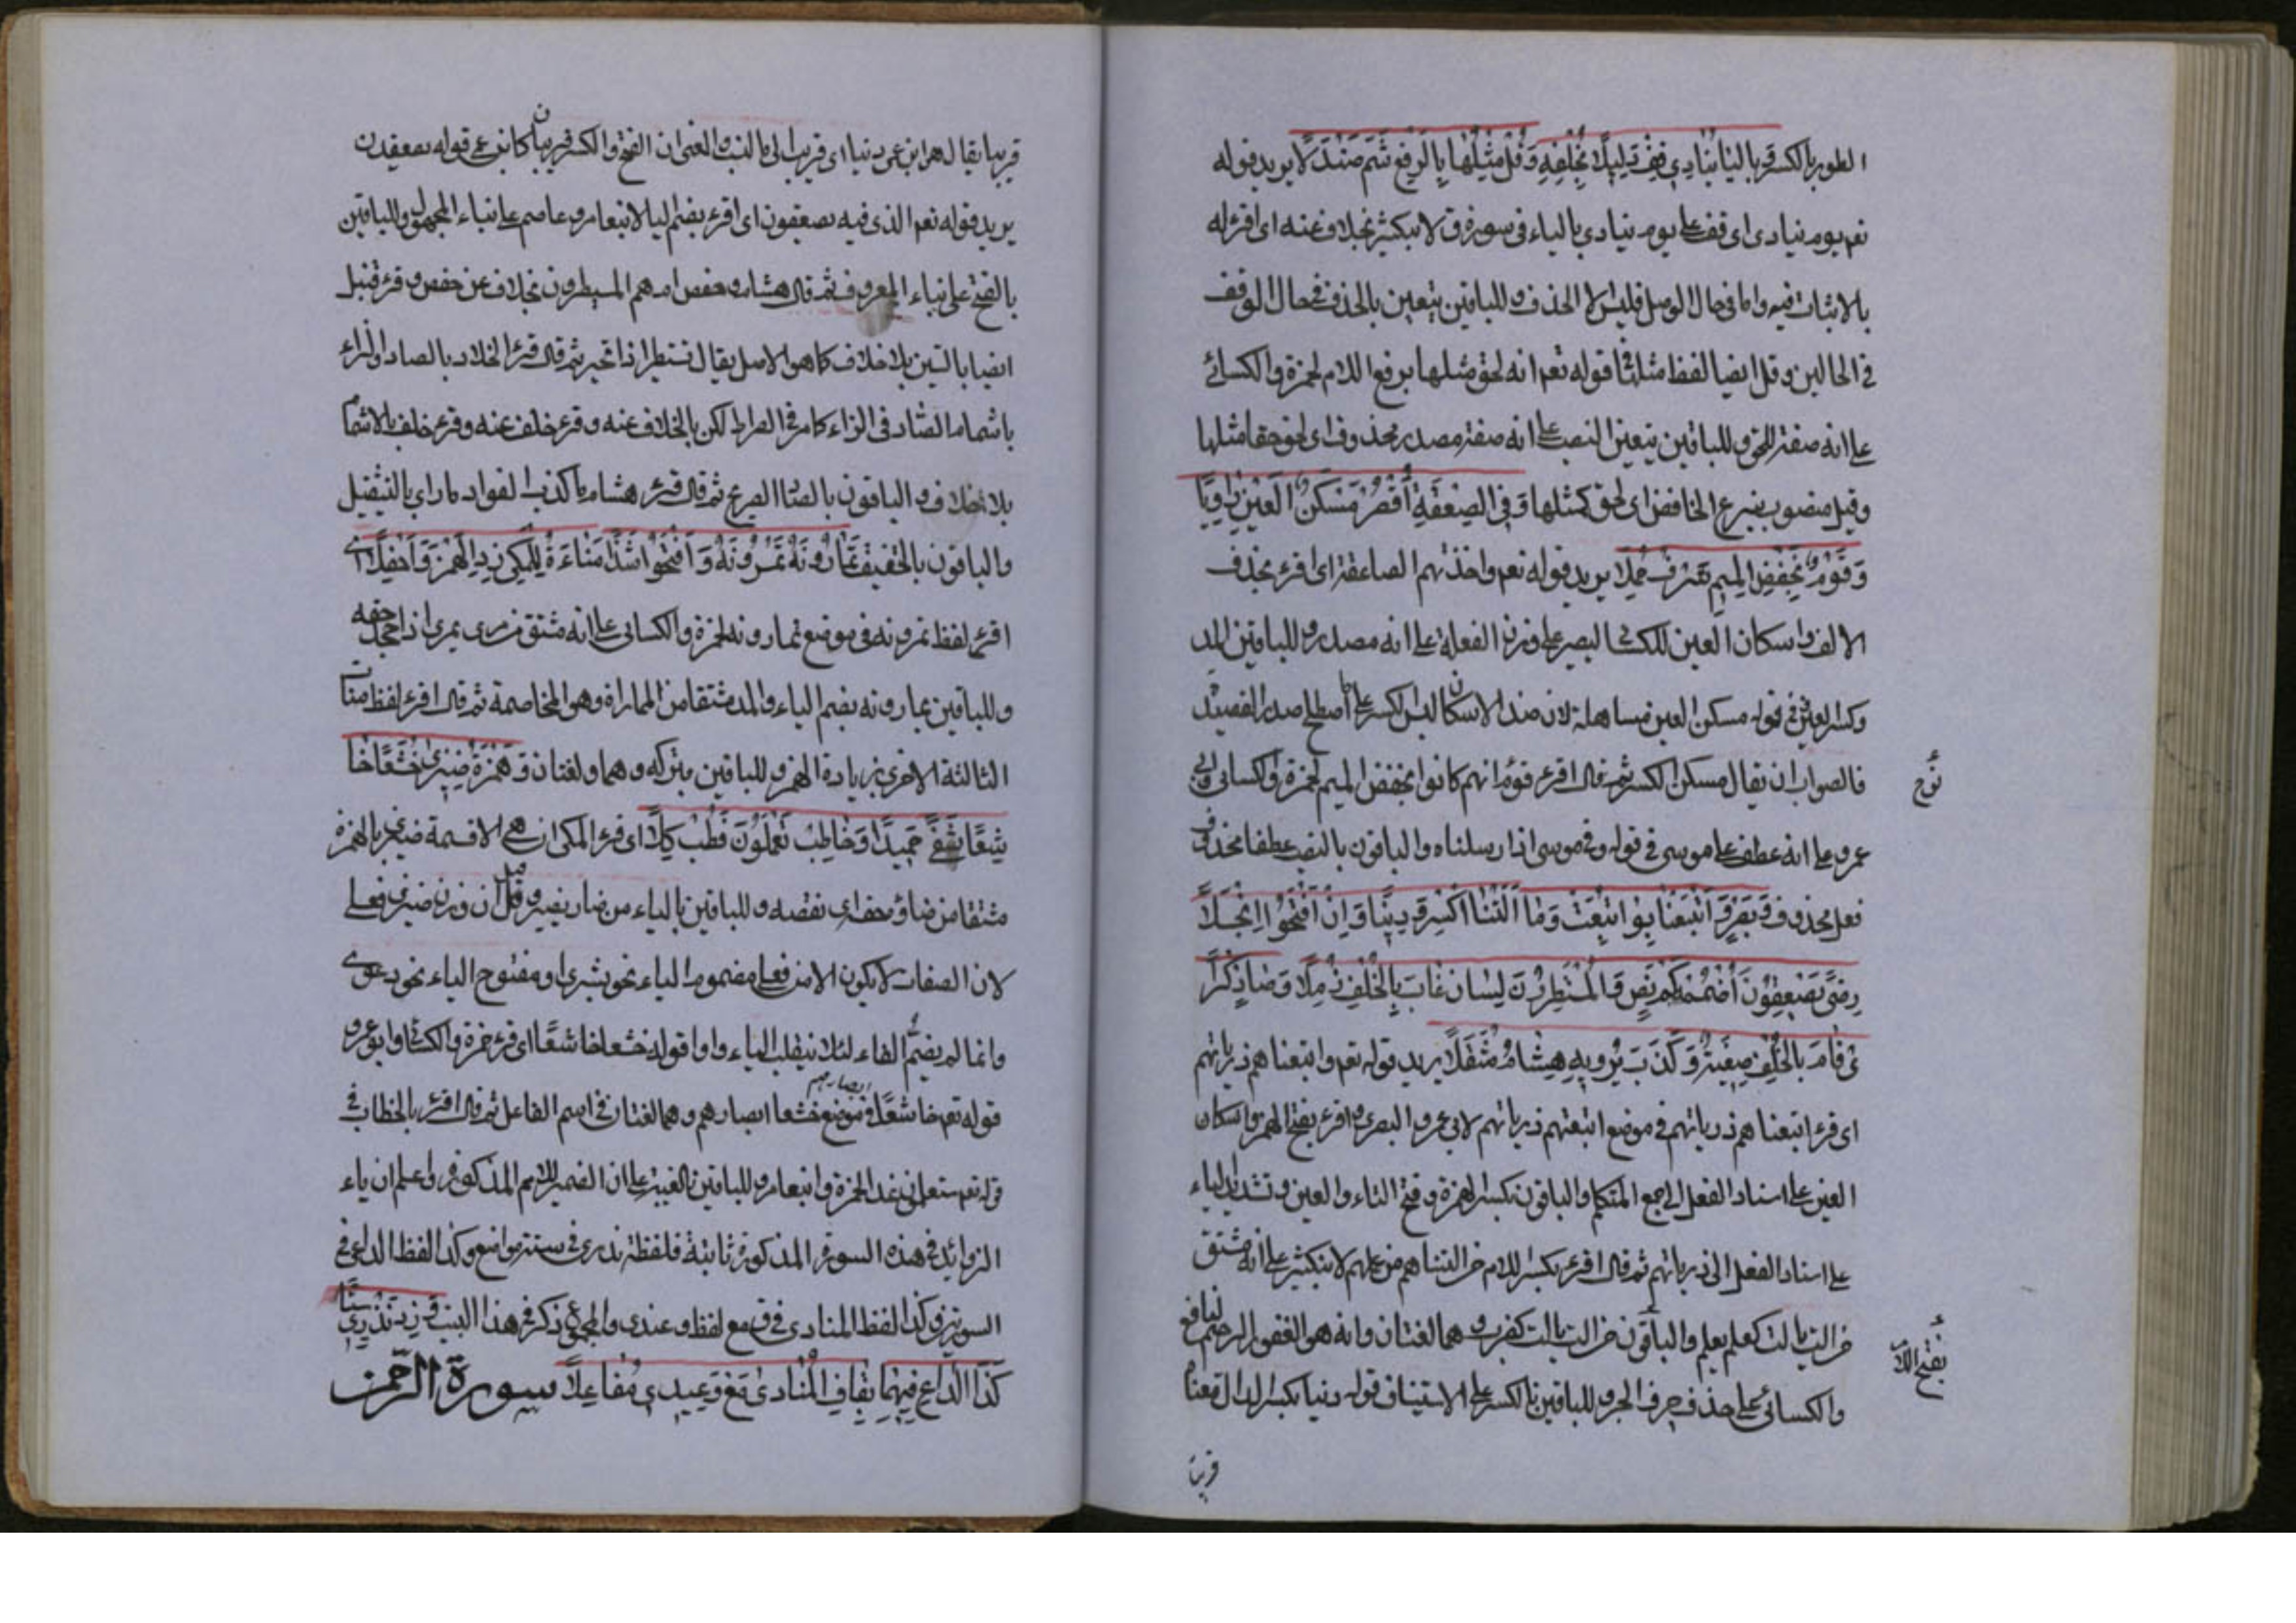 الطور بالكسر وباليا ينادي قف دليلا بخلفه وقل مثلها بالرفع شمم صندلا يريد قوله
نعم يوم ينادى اى قف على يوم ينادي بالياء فى سورة ق لابن كثير بخلاف عنه اى اقرء له
بالاثبات فيه واما فى حال الوصل فليس الا الحذف وللباقين يتعين بالحذف فى حال الوقف
فى الحالين وقل ايضا لفظ مثل فى قوله تعم انه لحق مثلها برفع اللام لحمزة والكسائى
على انه صفة للحق وللباقين يتعين النصب على انه صفة مصدر محذوف اى لحق حقا مثلها
وقيل منصوب بنزع الخافض اى لحق كمثلها وفى الصعقة اقصر مسكن العين راويا
وقوم بخفض الميم شرف حملا يريد قوله تعم واخذتهم الصاعقة اى اقرء بحذف
الالف واسكان العين للكسائى البصير على وزن الفعلة على انه مصدر وللباقين المد
وكسر العين فى قوله مسكن العين مساهلة لان ضد الاسكان ليس الكسر على ما اصطلح صدر القصيد
فالصواب ان يقال مسكن الكسر ثم قال اقرء قوم انهم كانوا بخفض الميم لحمزة والكسائى وابى
نوح
عمرو على انه عطف على موسى فى قوله وفى موسى اذ ارسلناه والباقون بالنصب عطفا بحذف
فعل محذوف وبصر واتبعنا بوا تبعت وما التنا اكسر دنيا وان افتحوا الجلا
رضى يصعقون اضممه كم نص والمسيطرون لسان عاب بالخلف زملا وصاد كزا
ى قام بالخلف ضبعه وكذب يرويه هشام مثقلا يريد قوله تعم واتبعناهم ذرياتهم
اى قرء اتبعناهم ذرياتهم فى موضع اتبعتهم ذرياتهم لابى عمرو البصرى واقرء بفتح الهمز واسكان
العين على اسناد الفعل الى جمع المتكلم والباقون بكسر الهمزة وفتح التاء والعين وتشديد الياء
على اسناد الفعل الى ذرياتهم ثم قال اقرء بكسر اللام من التناهم من عملهم لابن كثير على انه مشتق
من الت يالت كعلم يعلم والباقون من الت يالت كضرب وهما لغتان وانه هو الغفور الرحيم لنافع
بفتح اللام
والكسائى على حذف حرف الجر وللباقين بالكسر على الاستيناف قوله دنيا بكسر الدال معناه
قريبا
قريبا يقال هو ابن عمى دنيا اى قريب الى فى النسب والغنى ان الفتح والكسر قريبان كاين على قوله يصعقون
يريد قوله نعم الذى فيه يصعقون اى اقرء بضم اليا لابن عامر وعاصم على بناء المجهول وللباقين
بالفتح على بناء المعروف ثم قال هشام وحفص ام هم المسيطرون بخلاف عن حفص وقرء قنبل
ايضا بالسين بلا خلاف كما هو الاصل يقال تسيطر اذا تجبر ثم قال قرء الخلاد بالصاد والزاء
باشمام الصاد فى الزاء كما مر فى الصراط لكن بالخلاف عنه وقرء خلف عنه وقرء خلف بالاشمام
بلا خلاف والباقون بالصاد الصرع ثم قال قرء هشام ما كذب الفواد ما راى بالتثقيل
والباقون بالتخفيف تمارونه تمرونه وافتحوا شذا مناءة للمكى زد الهمز واحفلا اى
اقرء لفظ تمرونه فى موضع تمارونه لحمزة والكسائى على انه مشتق من مرى يمرى اذا جحد حقه
وللباقين تمارونه بضم الياء والمد مشتقا من المماراة وهو المخاصمة ثم قال اقرء لفظ منات
الثالثة الاخرى بزيادة الهمز وللباقين بتركه وهما ولغتان ويهمز ضيزى خشعا خا
شعا شفا حميدا وخاطب تعلمون فطب كلا اى قرء المكى ان هى الا قسمة ضيزى بالهمزة
مشتقا من ضأز حقه اى نقصه وللباقين بالياء من ضاز يضيز وقيل ان وزن ضيزى فعلى
لان الصفات لا يكون الا من فعلى مضموم الياء نحو بشرى او مفتوح الياء نحو دعوى
وانما لم يضم الفاء لئلا ينقلب الياء واوا قوله خشعا خاشعا اى قرء حمزة والكسائى وابو عمرو
قوله تعم خاشعا ابصارهم فى موضع خشعا ابصارهم وهما لغتان فى اسم الفاعل ثم قال اقرء بالخطاب فى
قوله تعم ستعلمون غدا لحمزة وابن عامر وللباقين بالغيبة على ان الضمير للامم المذكور واعلم ان ياء
الزوائد فى هذه السورة المذكورة ثابتة فلفظة نذرى فى ستة مواضع وكذا لفظ الداعى فى
السورتين وكذا لفظ المنادى فى ق مع لفظ وعندى والمجموع ذكر فى هذا البيت وزد نذرى ستا
كذا الداع فيهما بقاف المنادى مع وعيدى مفاعلا سورة الرحمن